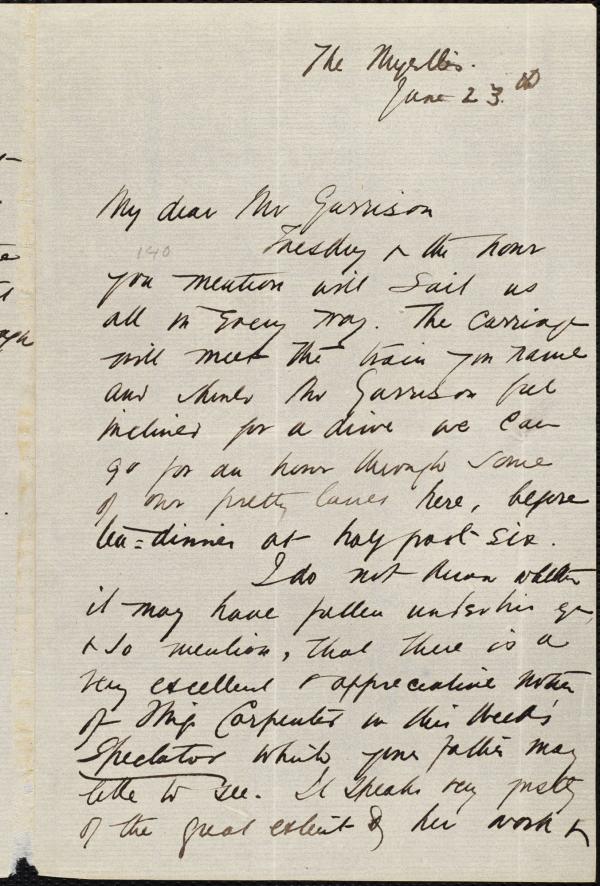 The Myrtles.
June 23rd
My dear Mr Garrison
140
Tuesday & the hour
you mention will suit us
all in every way. The carriage
will meet the train you name
and should Mr Garrison feel
inclined for a drive we can
go for an hour through some
of our pretty lanes here, before
tea=dinner at half past six.
I do not know whether
it may have fallen under his eye,
& so mention, that there is a
very excellent & appreciative notice
of Miss Carpenter in this Week's
Spectator which your father may
like to see. It speaks very justly
of the great extent of her work &